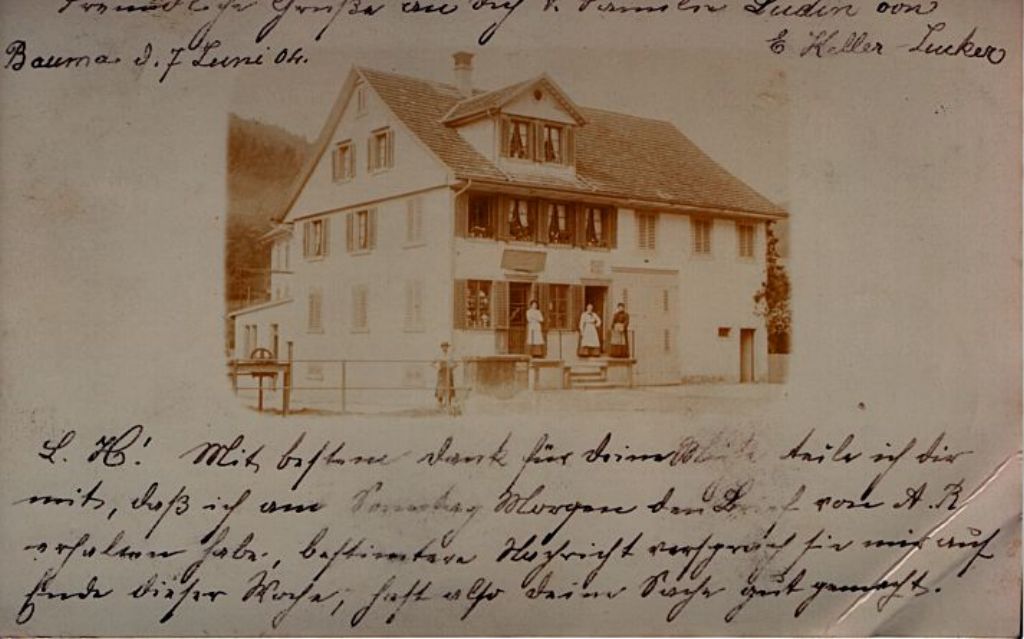 Freundliche Grüße an dich v. Familie Ludin von
Bauma. d. 7 Juni 04.
E Keller-
L. H! Mit bestem Dank für deine teile ich dir
mit, daß ich am Sonntag Morgen den Brief von A. R
erhalten habe, bestimtere Nachricht versprach sie mir auf
Ende dieser Woche, hast also deine Sache gut gemacht.